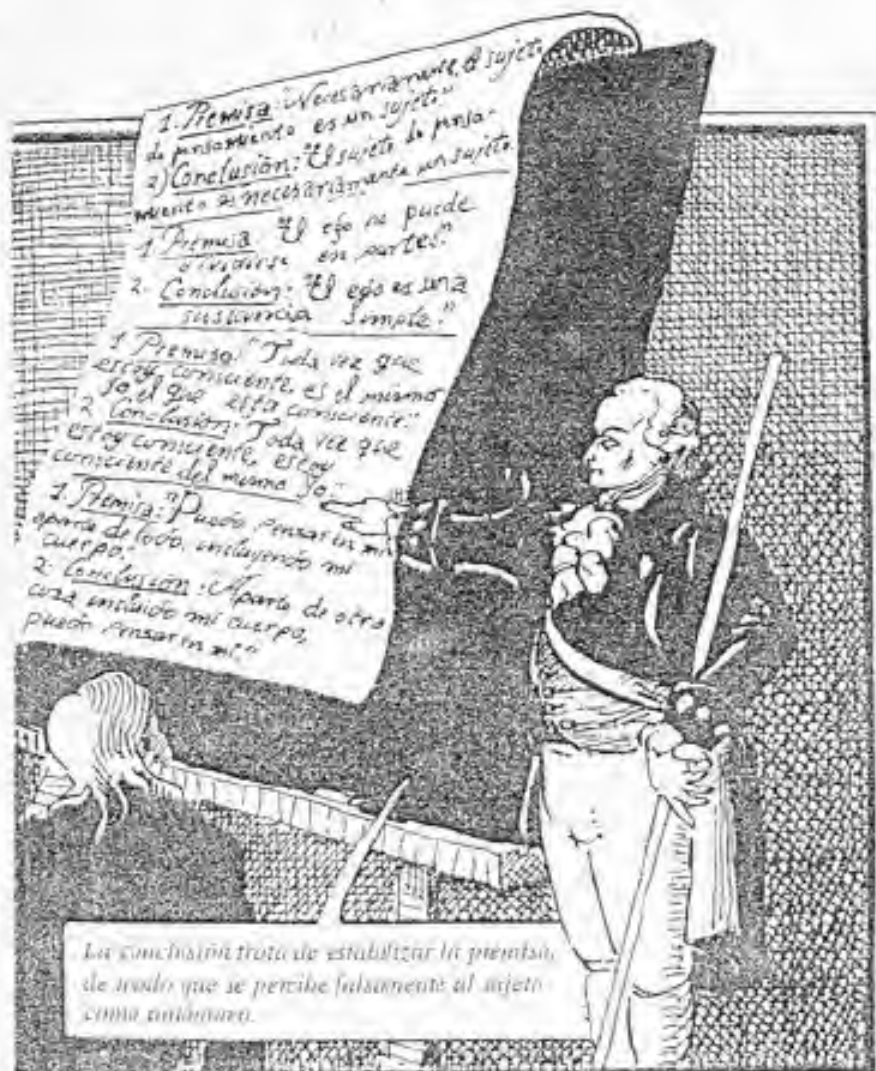 1. Premisa: "Necesariamente, el sujeto
de pensamiento es un sujeto."
2) Conclusión: "El sujeto de pensa-
miento es necesariamente un sujeto.
1. Premisa "El ego no puede
dividirse en partes."
2. Conclusión: "El ego es una
sustancia simple."
1. Premisa: "Toda vez que
estoy consciente, es el mismo
Yo, el que está consciente."
2. Conclusión: "Toda vez que
estoy consciente, estoy
consciente del mismo Yo."
1. Premisa: "Puedo pensar en mí
aparte de todo, incluyendo mi
cuerpo."
2. Conclusión: "Aparte de otra
cosa, incluido mi cuerpo,
puedo pensar en mí."
La conclusión trata de estabilizar la premisa,
de modo que se percibe falsamente al sujeto
como autónomo.